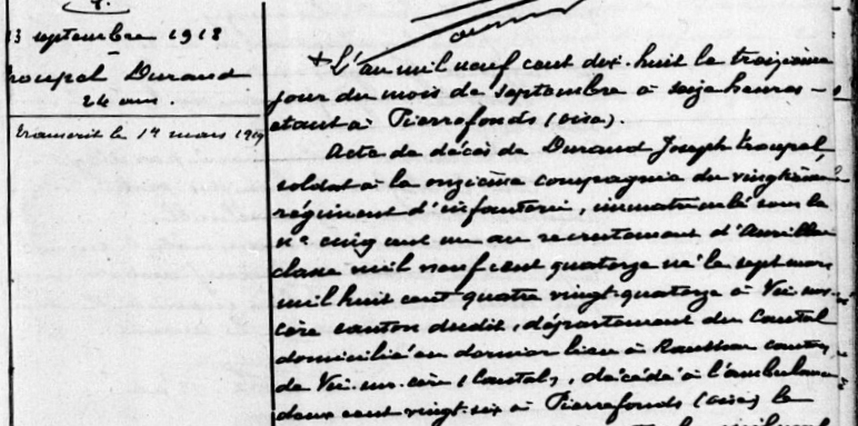 13 septembre 1918
Troupel Durand
24 ans.
Transcrit le 14 mars 1919
L'an mil neuf cent dix-huit le treizième
jour du mois de septembre à seize heures -
étant à Pierrefonds (oise).
Acte de décès de Durand Joseph Troupel,
soldat à la onzième compagnie du vingtième
régiment d'infanterie, immatriculé sous le
n° cinq cent un au recrutement d'Aurillac
classe mil neuf cent quatorze né le sept mars
mil huit cent quatre vingt-quatorze à Vic-sur-
cère canton dudit, département du Cantal
domicilié en dernier lieu à canton
de Vic-sur-cère (Cantal), décédé à l'ambulance
deux cent vingt-six à Pierrefonds (oise) le